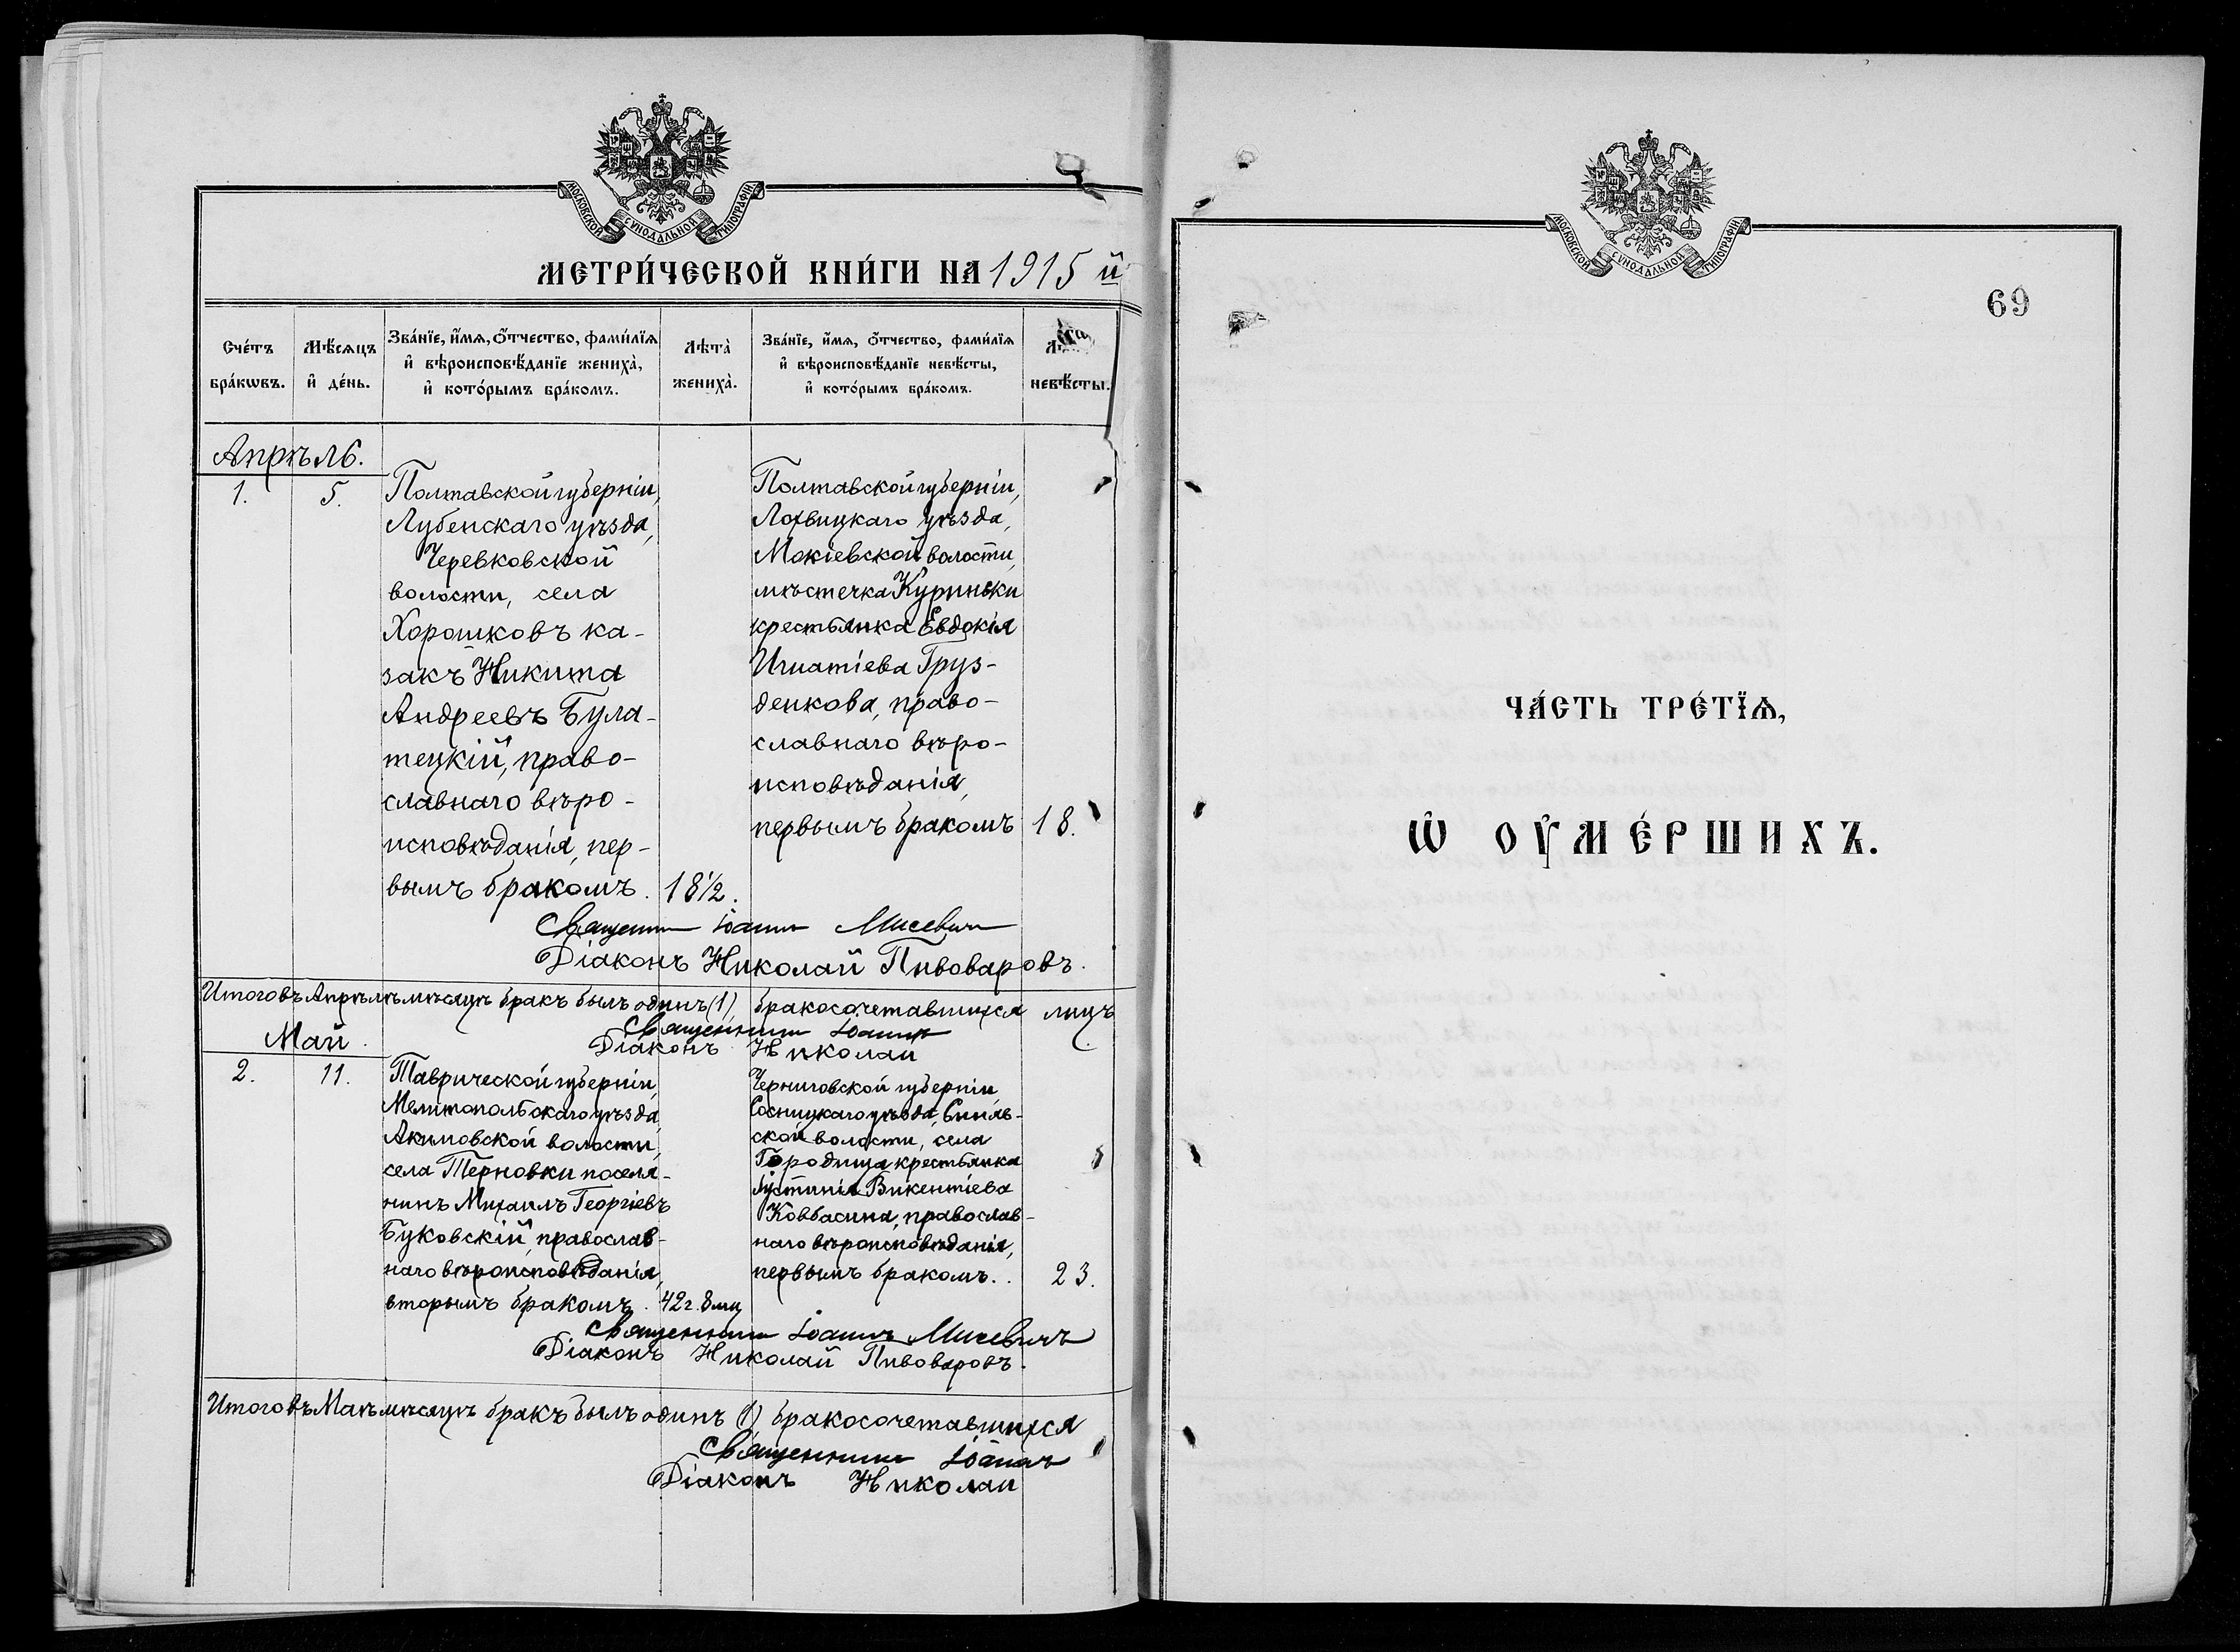 МОСКОВСКОЙ СѴНОДАЛЬНОЙ ТИПОГРАФІИ
МЕТРИ́ЧЕСКОЙ КНИ́ГИ НА 1915 й
Сче́тъ бра́кѡвъ.
Мѣ́сяцъ и҆ де́нь.
Зва́нїе, и҆́мѧ, ѻ҆́тчество, фами́лїѧ и҆ вѣроисповѣ́данїе жениха̀, и҆ кото́рымъ бра́комъ.
Лѣта̀ жениха̀.
Зва́нїе, и҆́мѧ, ѻ҆́тчество, фами́лїѧ и҆ вѣроисповѣ́данїе невѣ́сты, и҆ кото́рымъ бра́комъ.
невѣ́сты.
Апрѣль.
1.
5.
Полтавской губерніи,
Лубенскаго уѣзда,
Черевковской
волости, села
Хорошковъ ка-
закъ Никита
Андреевъ Була-
тецкій, право-
славнаго вѣро-
исповѣданія, пер-
вымъ бракомъ.
18½.
Полтавской губерніи,
Лохвицкаго уѣзда,
Мокіевской волости,
мѣстечка Куриньки
крестьянка Евдокія
Игнатіева Груз-
денкова, право-
славнаго вѣро-
исповѣданія,
первымъ бракомъ
18.
Священникъ Іоаннъ Мисевичъ
Діаконъ Николай Пивоваровъ.
Итого въ Апрѣлѣ мѣсяцѣ бракъ былъ одинъ (1), бракосочетавшихся лицъ
Священникъ Іоаннъ
Діаконъ Николай
Май.
2.
11.
Таврической губерніи,
Мелитопольскаго уѣзда,
Акимовской волости,
села Терновки поселя-
нинъ Михаилъ Георгіевъ
Буковскій, православ-
наго вѣроисповѣданія,
вторымъ бракомъ.
42 г. 8 мц
Черниговской губерніи,
Сосницкаго уѣзда, Синяв-
ской волости, села
Городища крестьянка
Іустинія Викентіева
Ковбасина, православ-
наго вѣроисповѣданія,
первымъ бракомъ.
23.
Священникъ Іоаннъ Мисевичъ
Діаконъ Николай Пивоваровъ.
Итого въ Маѣ мѣсяцѣ бракъ былъ одинъ (1) бракосочетавшихся
Священникъ Іоаннъ
Діаконъ Николай
МОСКОВСКОЙ СѴНОДАЛЬНОЙ ТИПОГРАФІИ
69
ЧА́СТЬ ТРЕ́ТЇѦ,
Ѡ҆ ОУ҆МЕ́РШИХЪ.